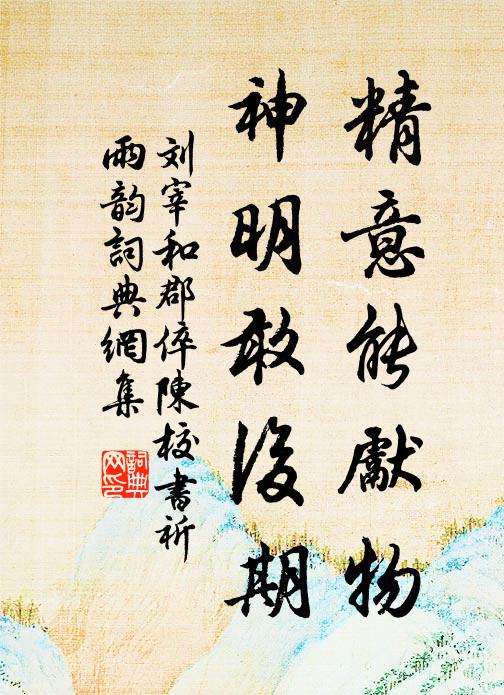 精意能献物
神明敢後期
刘宰和郡倅陳校書祈
雨韵詞典網集
詞典
网印